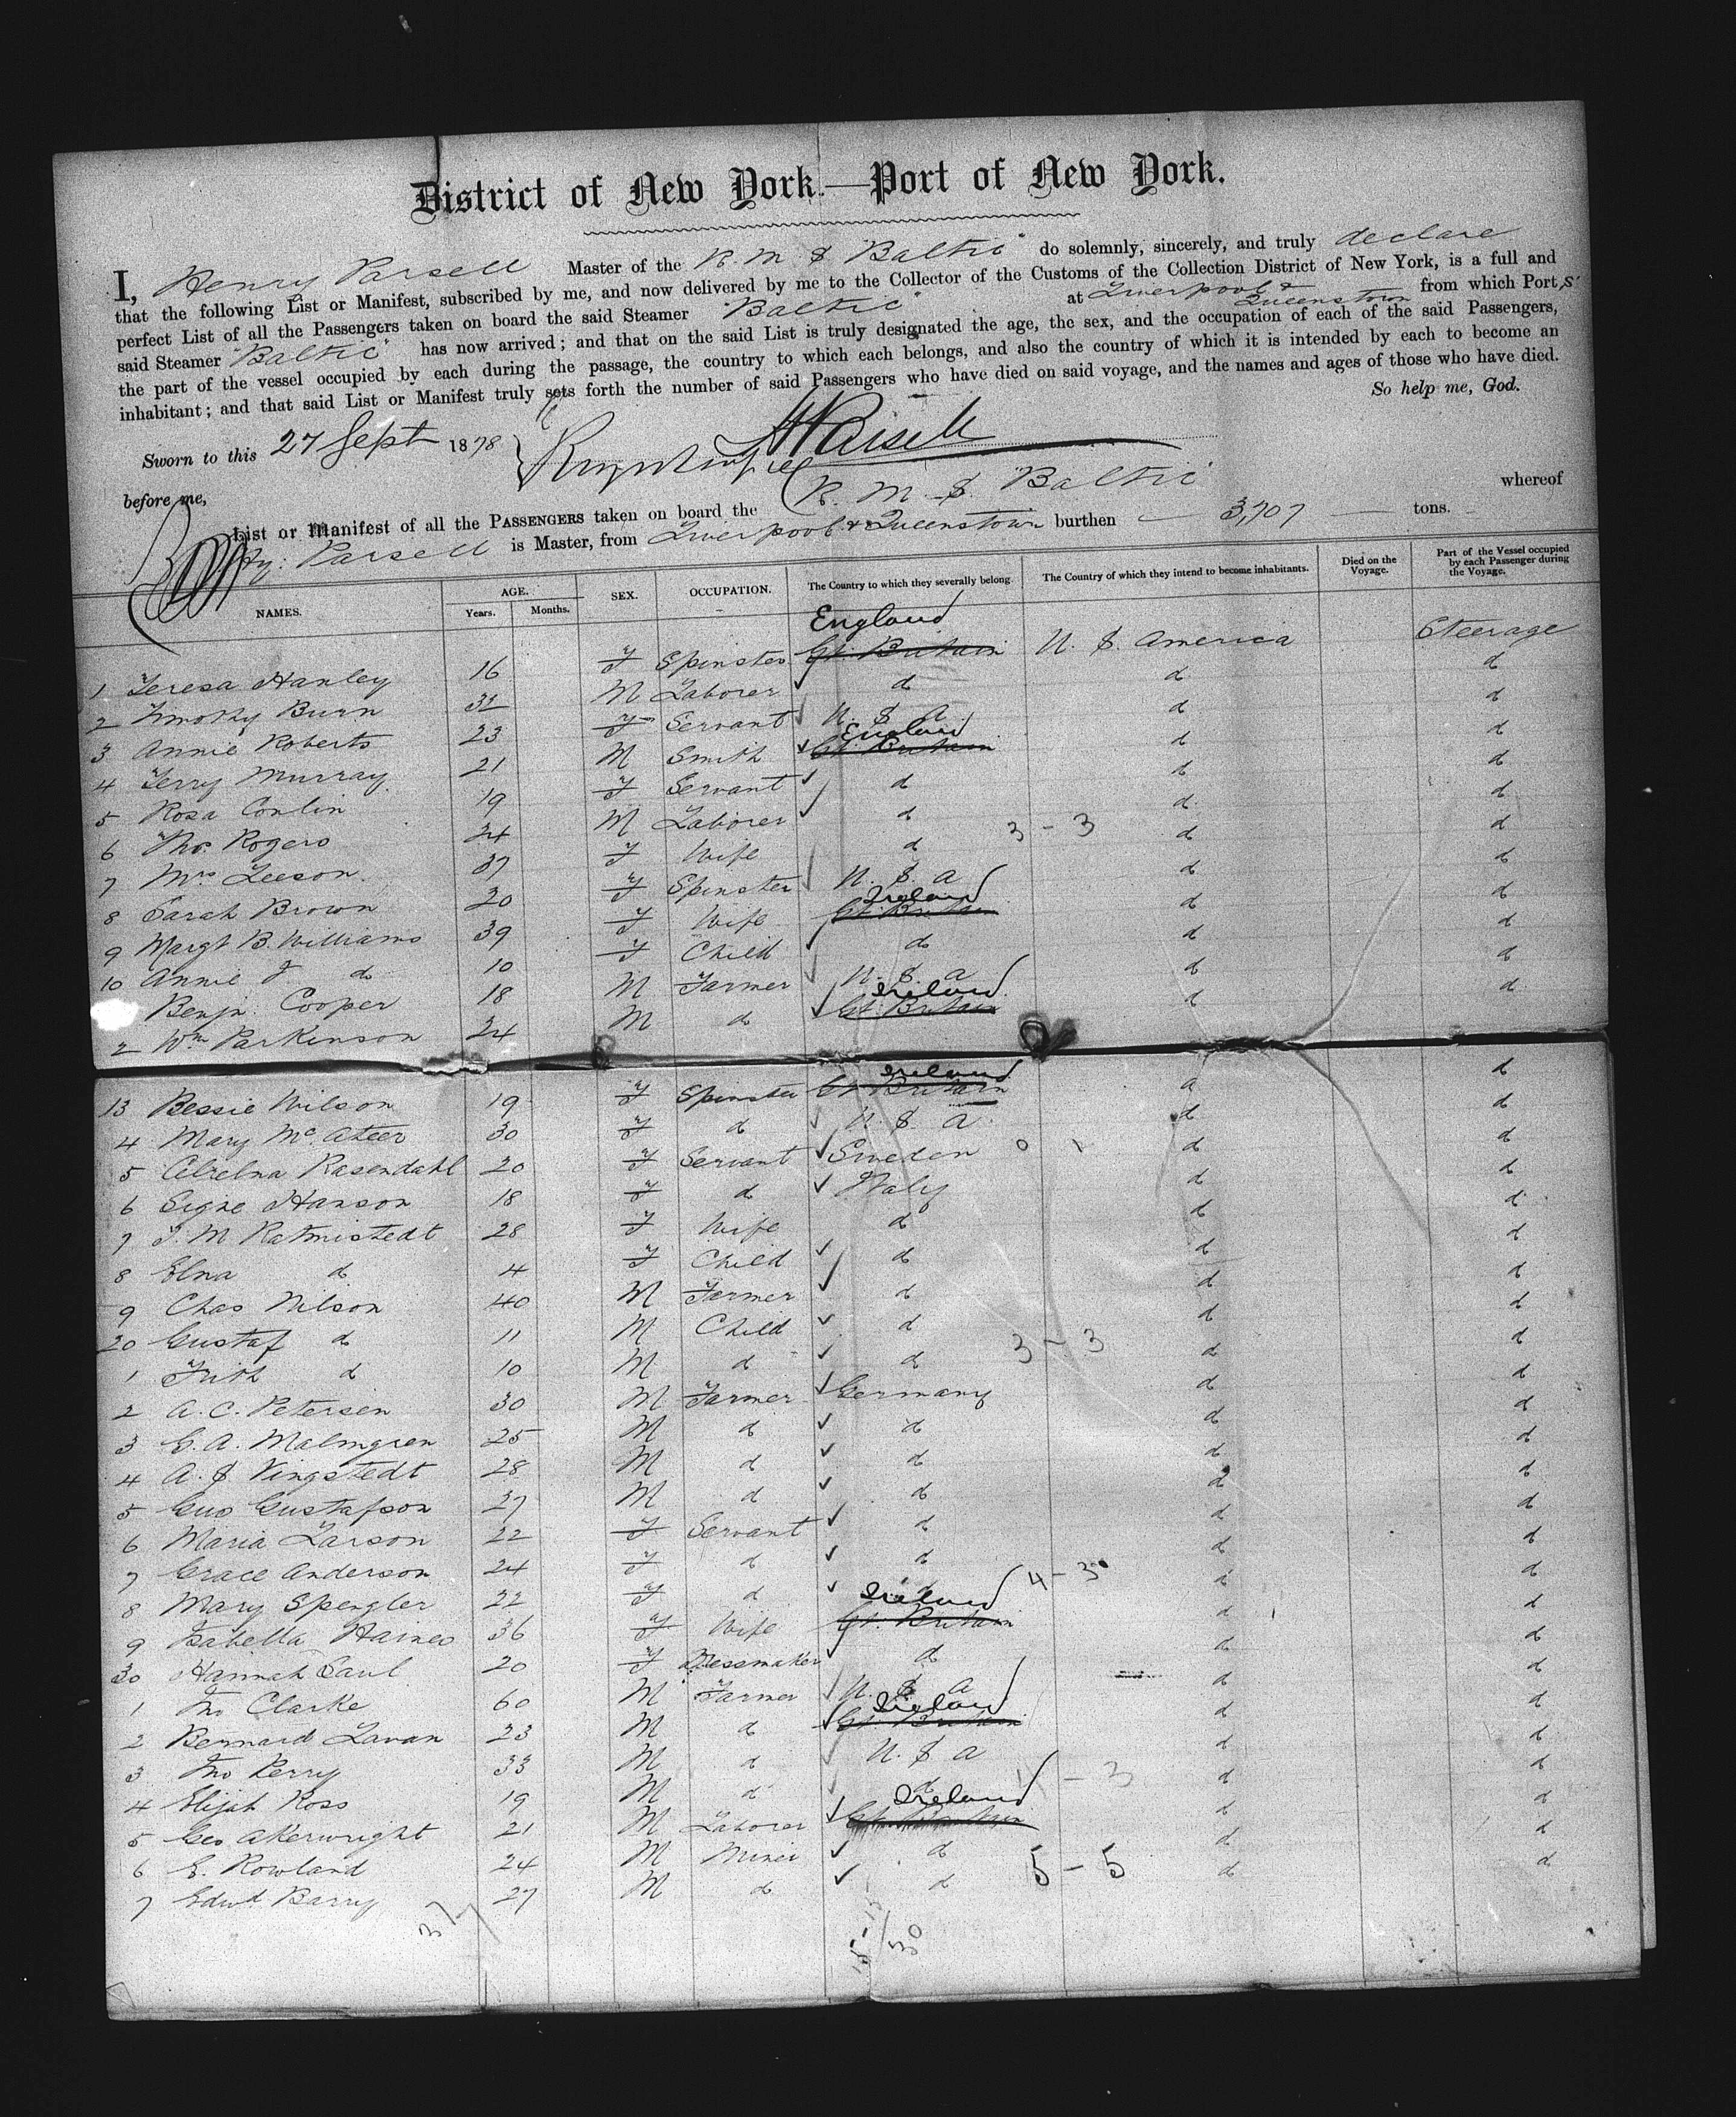 District of New York.—Port of New York.
I, Henry Parsell Master of the R. M. S "Baltic" do solemnly, sincerely, and truly declare
that the following List or Manifest, subscribed by me, and now delivered by me to the Collector of the Customs of the Collection District of New York, is a full and
perfect List of all the Passengers taken on board the said Steamer "Baltic" at Liverpool & Queenstown from which Ports
said Steamer "Baltic" has now arrived; and that on the said List is truly designated the age, the sex, and the occupation of each of the said Passengers,
the part of the vessel occupied by each during the passage, the country to which each belongs, and also the country of which it is intended by each to become an
inhabitant; and that said List or Manifest truly sets forth the number of said Passengers who have died on said voyage, and the names and ages of those who have died.
So help me, God.
Sworn to this 27 Sept 1878 HParsell
before me,
List or Manifest of all the PASSENGERS taken on board the R. M. S. Baltic whereof
Hy: Parsell is Master, from Liverpool & Queenstown burthen — 3,707 — tons.
NAMES. AGE. Years. Months. SEX. OCCUPATION. The Country to which they severally belong. The Country of which they intend to become inhabitants. Died on the Voyage. Part of the Vessel occupied by each Passenger during the Voyage.
England
1 Teresa Hanley 16 F Spinster Gt. Britain U. S. America Steerage
2 Timothy Burn 32 M Laborer d d d
3 Annie Roberts 23 F Servant U. S. A. d d
England
4 Terry Murray 21 M Smith Gt. Britain d d
5 Rosa Conlin 19 F Servant d d d
6 Tho. Rogers 24 M Laborer d d d
7 Mrs Leeson 37 F Wife d 3 - 3 d d
8 Sarah Brown 20 F Spinster U. S. A d d
Ireland
9 Margt B. Williams 39 F Wife Gt. Britain d d
10 Annie J d 10 F Child d d d
Benjn. Cooper 18 M Farmer U. S. A d d
Ireland
2 Wm Parkinson 24 M d Gt. Britain d d
Ireland
13 Bessie Wilson 19 F Spinster Gt Britain d d
4 Mary McAteer 30 F d U. S. A. d d
5 Rasendahl 20 F Servant Sweden 0 1 d d
6 Signe Hanson 18 F d Italy d d
7 28 F Wife d d d
8 Elna d 4 F Child d d d
9 Chas Nilson 40 M Farmer d d d
20 Gustaf d 11 M Child d d d
1 Frith d 10 M d d 3 - 3 d d
2 A. C. Petersen 30 M Farmer Germany d d
3 G. A. Malmgren 25 M d d d d
4 A. S Vingstedt 28 M d d d d
5 Gus Gustafson 27 M d d d d
6 Maria Larson 22 F Servant d d d
7 Grace Anderson 24 F d d d d
8 Mary Spengler 22 F d d 4 - 3 d d
Ireland
9 Isabella Haines 36 F Wife Gt. Britain d d
30 Hannah Saul 20 F Dressmaker d d d
1 Tho Clarke 60 M Farmer U. S. A d d
Ireland
2 Bernard Lavan 23 M d Gt. Britain d d
3 Tho Perry 33 M d U. S. A d d
4 Elijah Ross 19 M d d 4 - 3 d d
Ireland
5 Geo Akerwright 21 M Laborer Gt. Britain d d
6 E. Rowland 24 M Miner d d d
7 Edwd Barry 27 M d d 5 - 5 d d
37
15 - 15
30